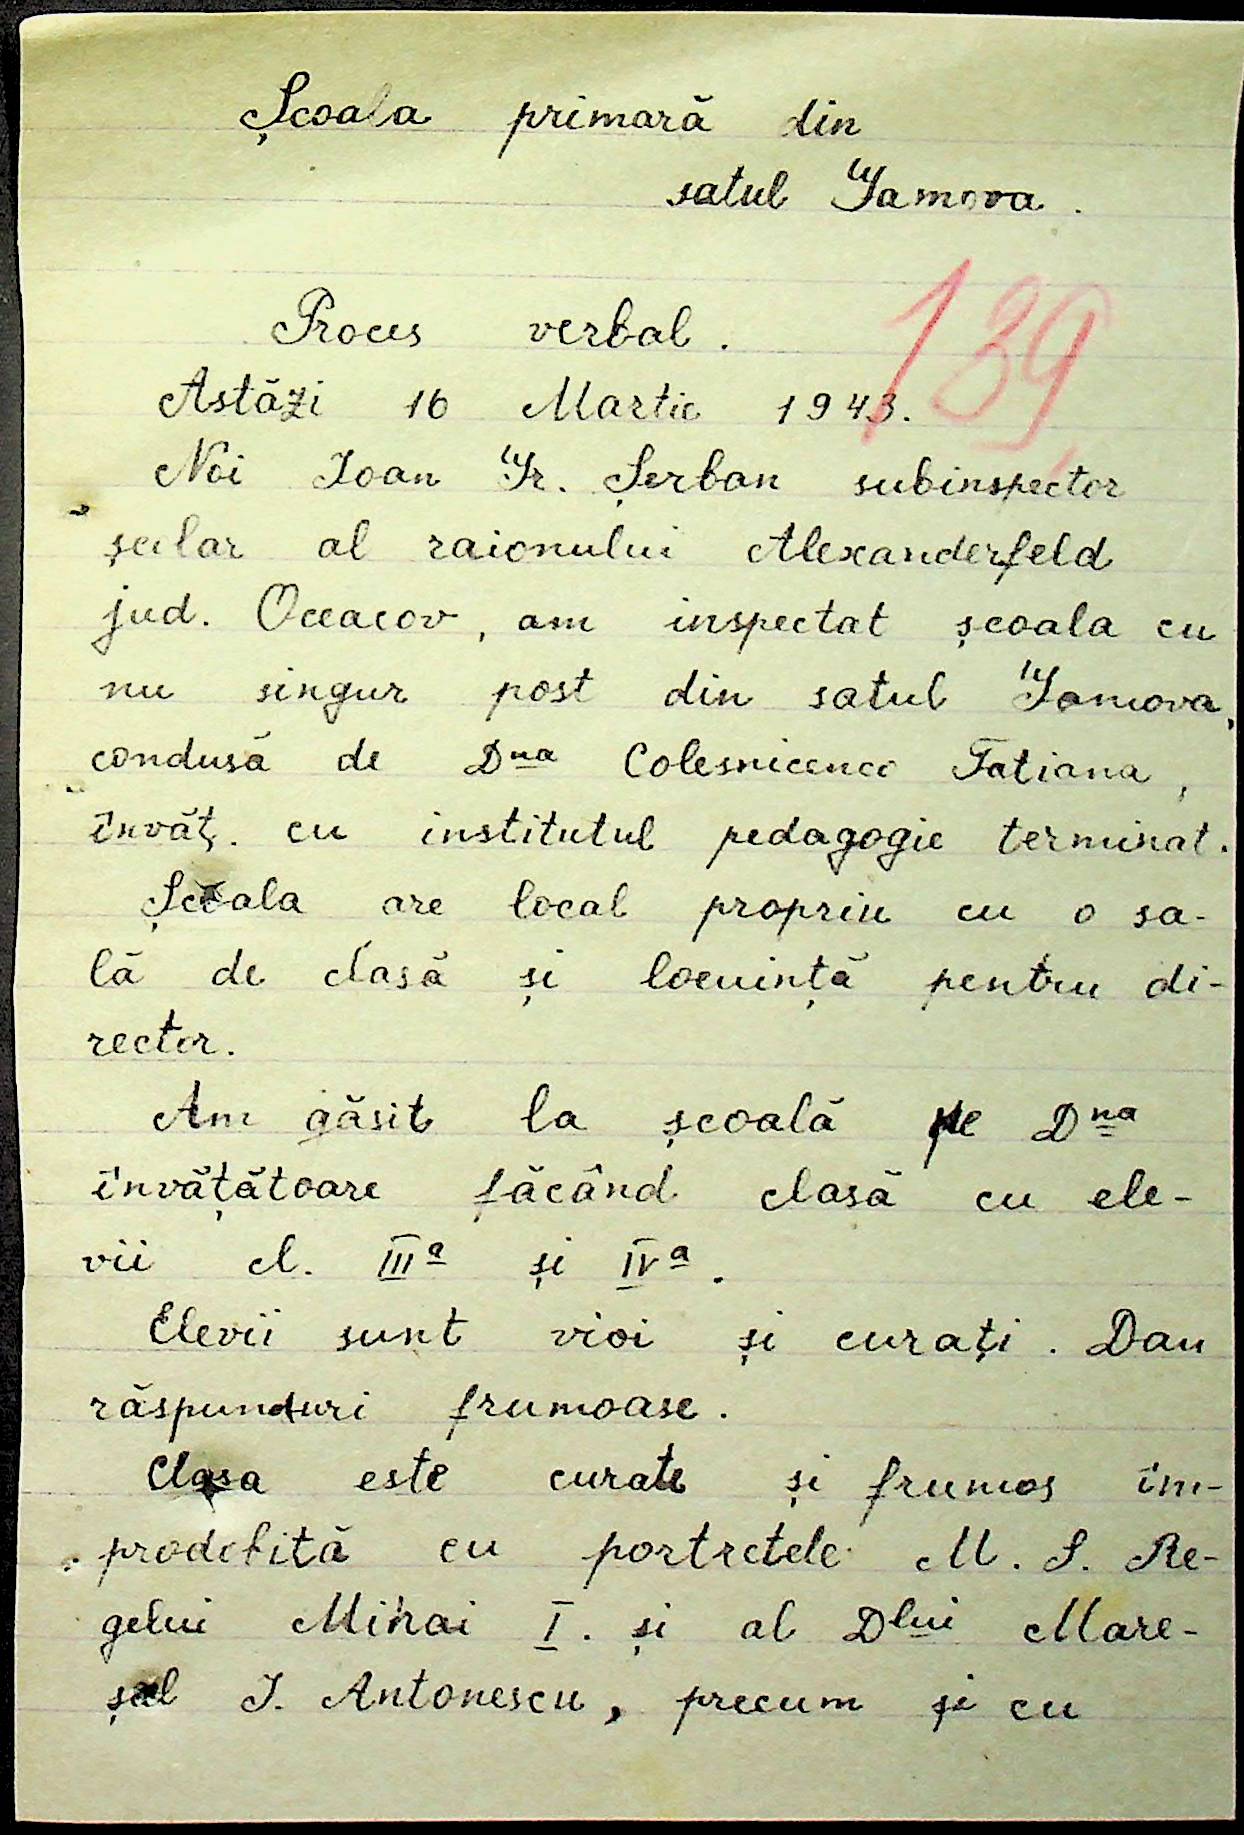 Școala primară din
satul Gamova.
139
Proces verbal.
Astăzi 16 Martie 1943.
Noi Ioan Gr. Șerban subinspector
școlar al raionului Alexanderfeld
jud. Oceacov, am inspectat școala cu
nu singur post din satul Gamova,
condusă de Dna Colesnicenco Tatiana,
învăț. cu institutul pedagogic terminat.
Școala are local propriu cu o sa-
lă de clasă și locuință pentru di-
rector.
Am găsit la școală pe Dna
învățătoare făcând clasă cu ele-
vii cl. IIIa și IVa.
Elevii sunt vioi și curați. Dau
răspunsuri frumoase.
Clasa este curate și frumos îm-
prodobită cu portretele M. S. Re-
gelui Mihai I. și al Dlui Mare-
șal I. Antonescu, precum și cu